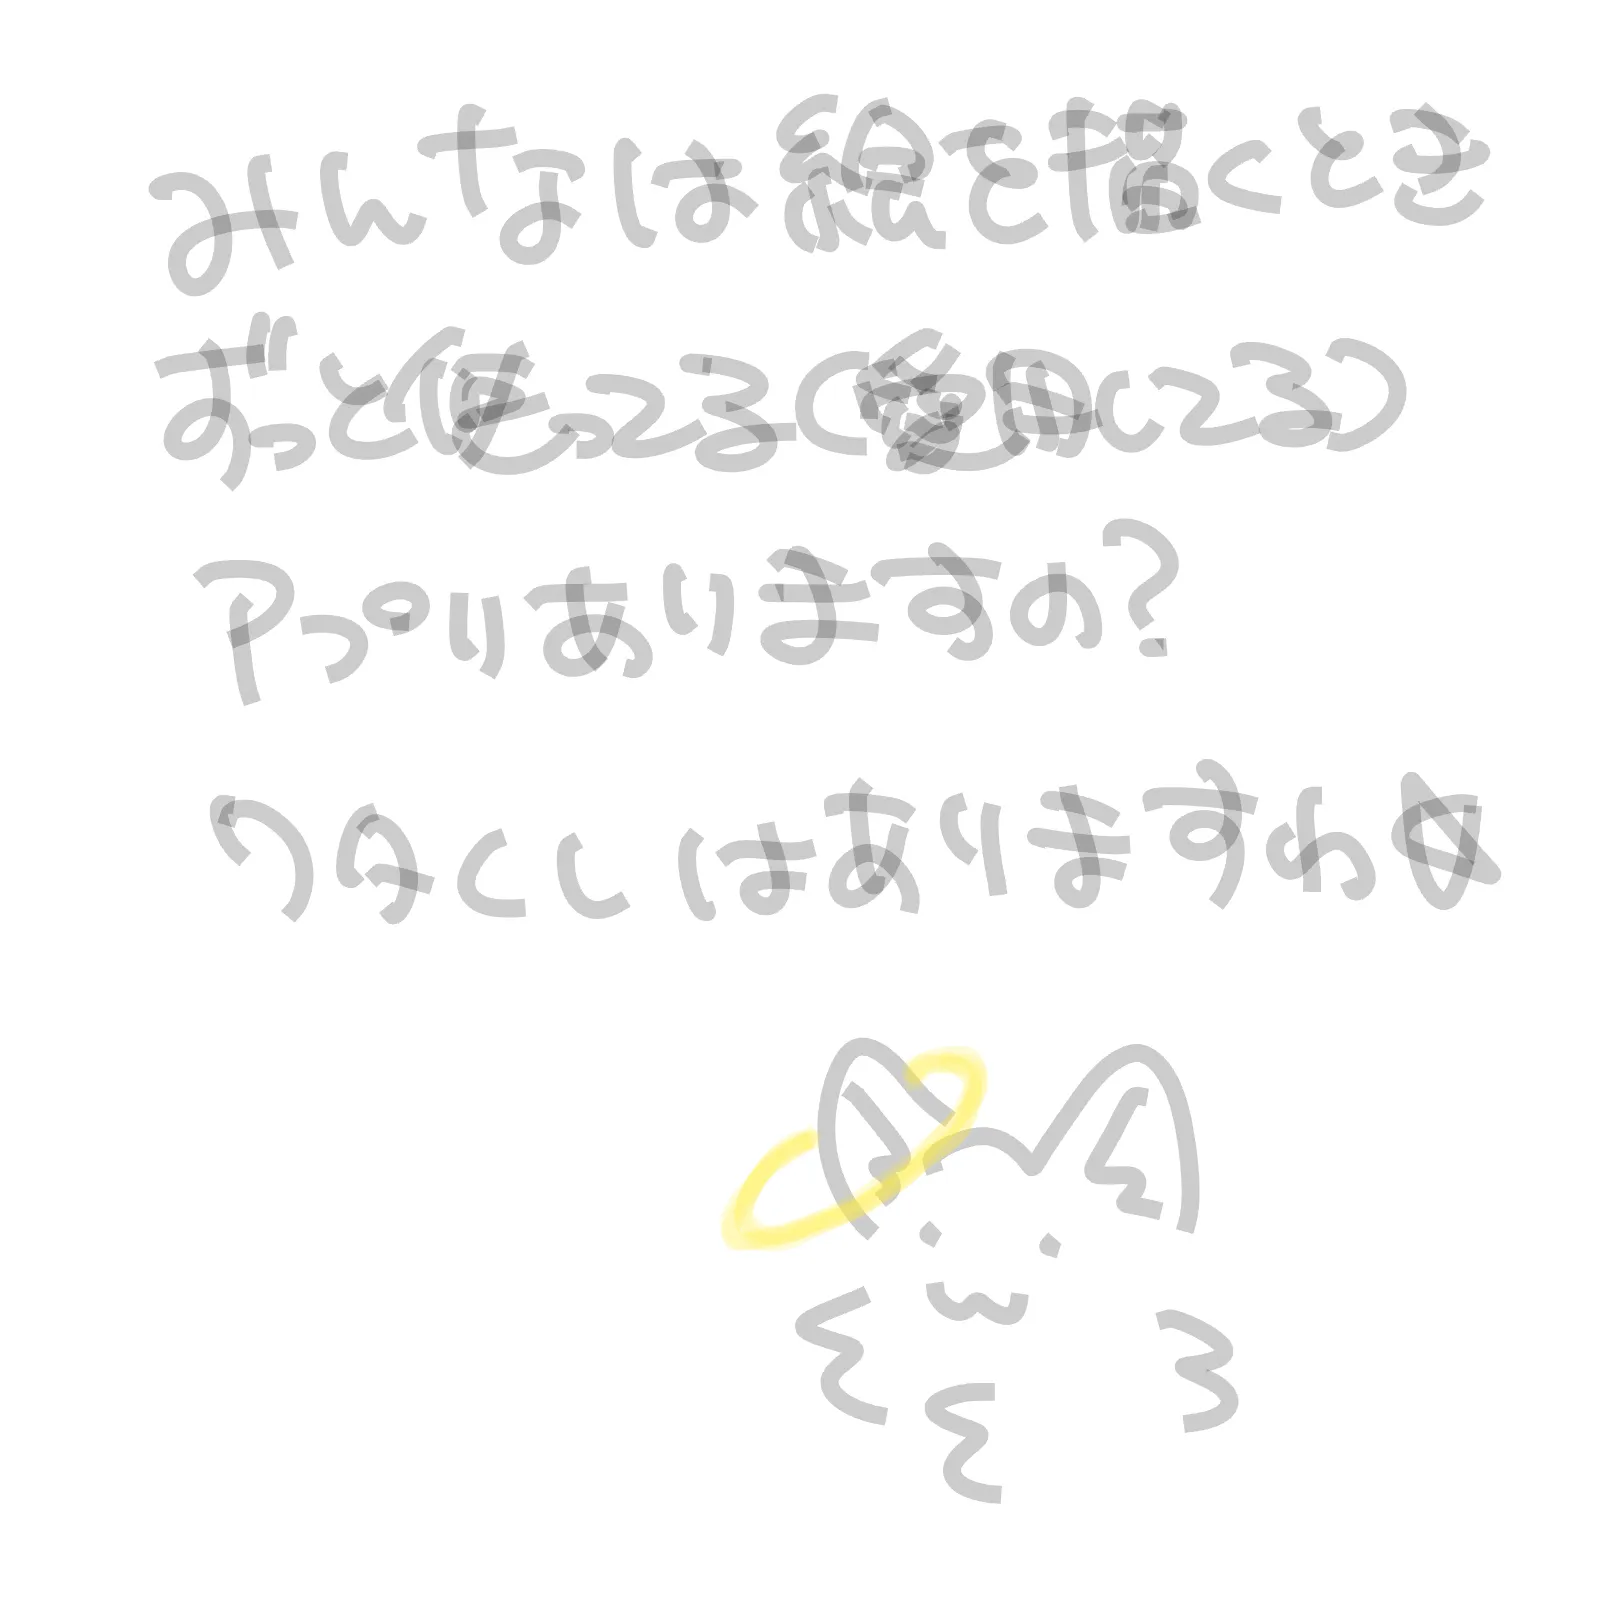 みんなは絵を描くとき
ずっと使ってる(愛用してる)
アプリありますの?
ワタくしはありますわ☆